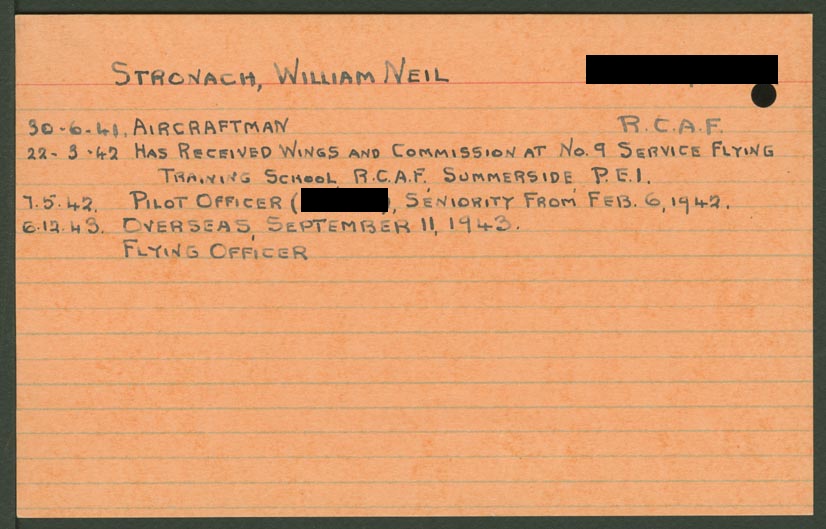 STRONACH, WILLIAM NEIL
30-6-41. AIRCRAFTMAN R.C.A.F.
22-3-42 HAS RECEIVED WINGS AND COMMISSION AT NO. 9 SERVICE FLYING
TRAINING SCHOOL R.C.A.F. SUMMERSIDE P.E.I.
7.5.42. PILOT OFFICER ( ), SENIORITY FROM FEB. 6, 1942.
6.12.43. OVERSEAS, SEPTEMBER 11, 1943.
FLYING OFFICER